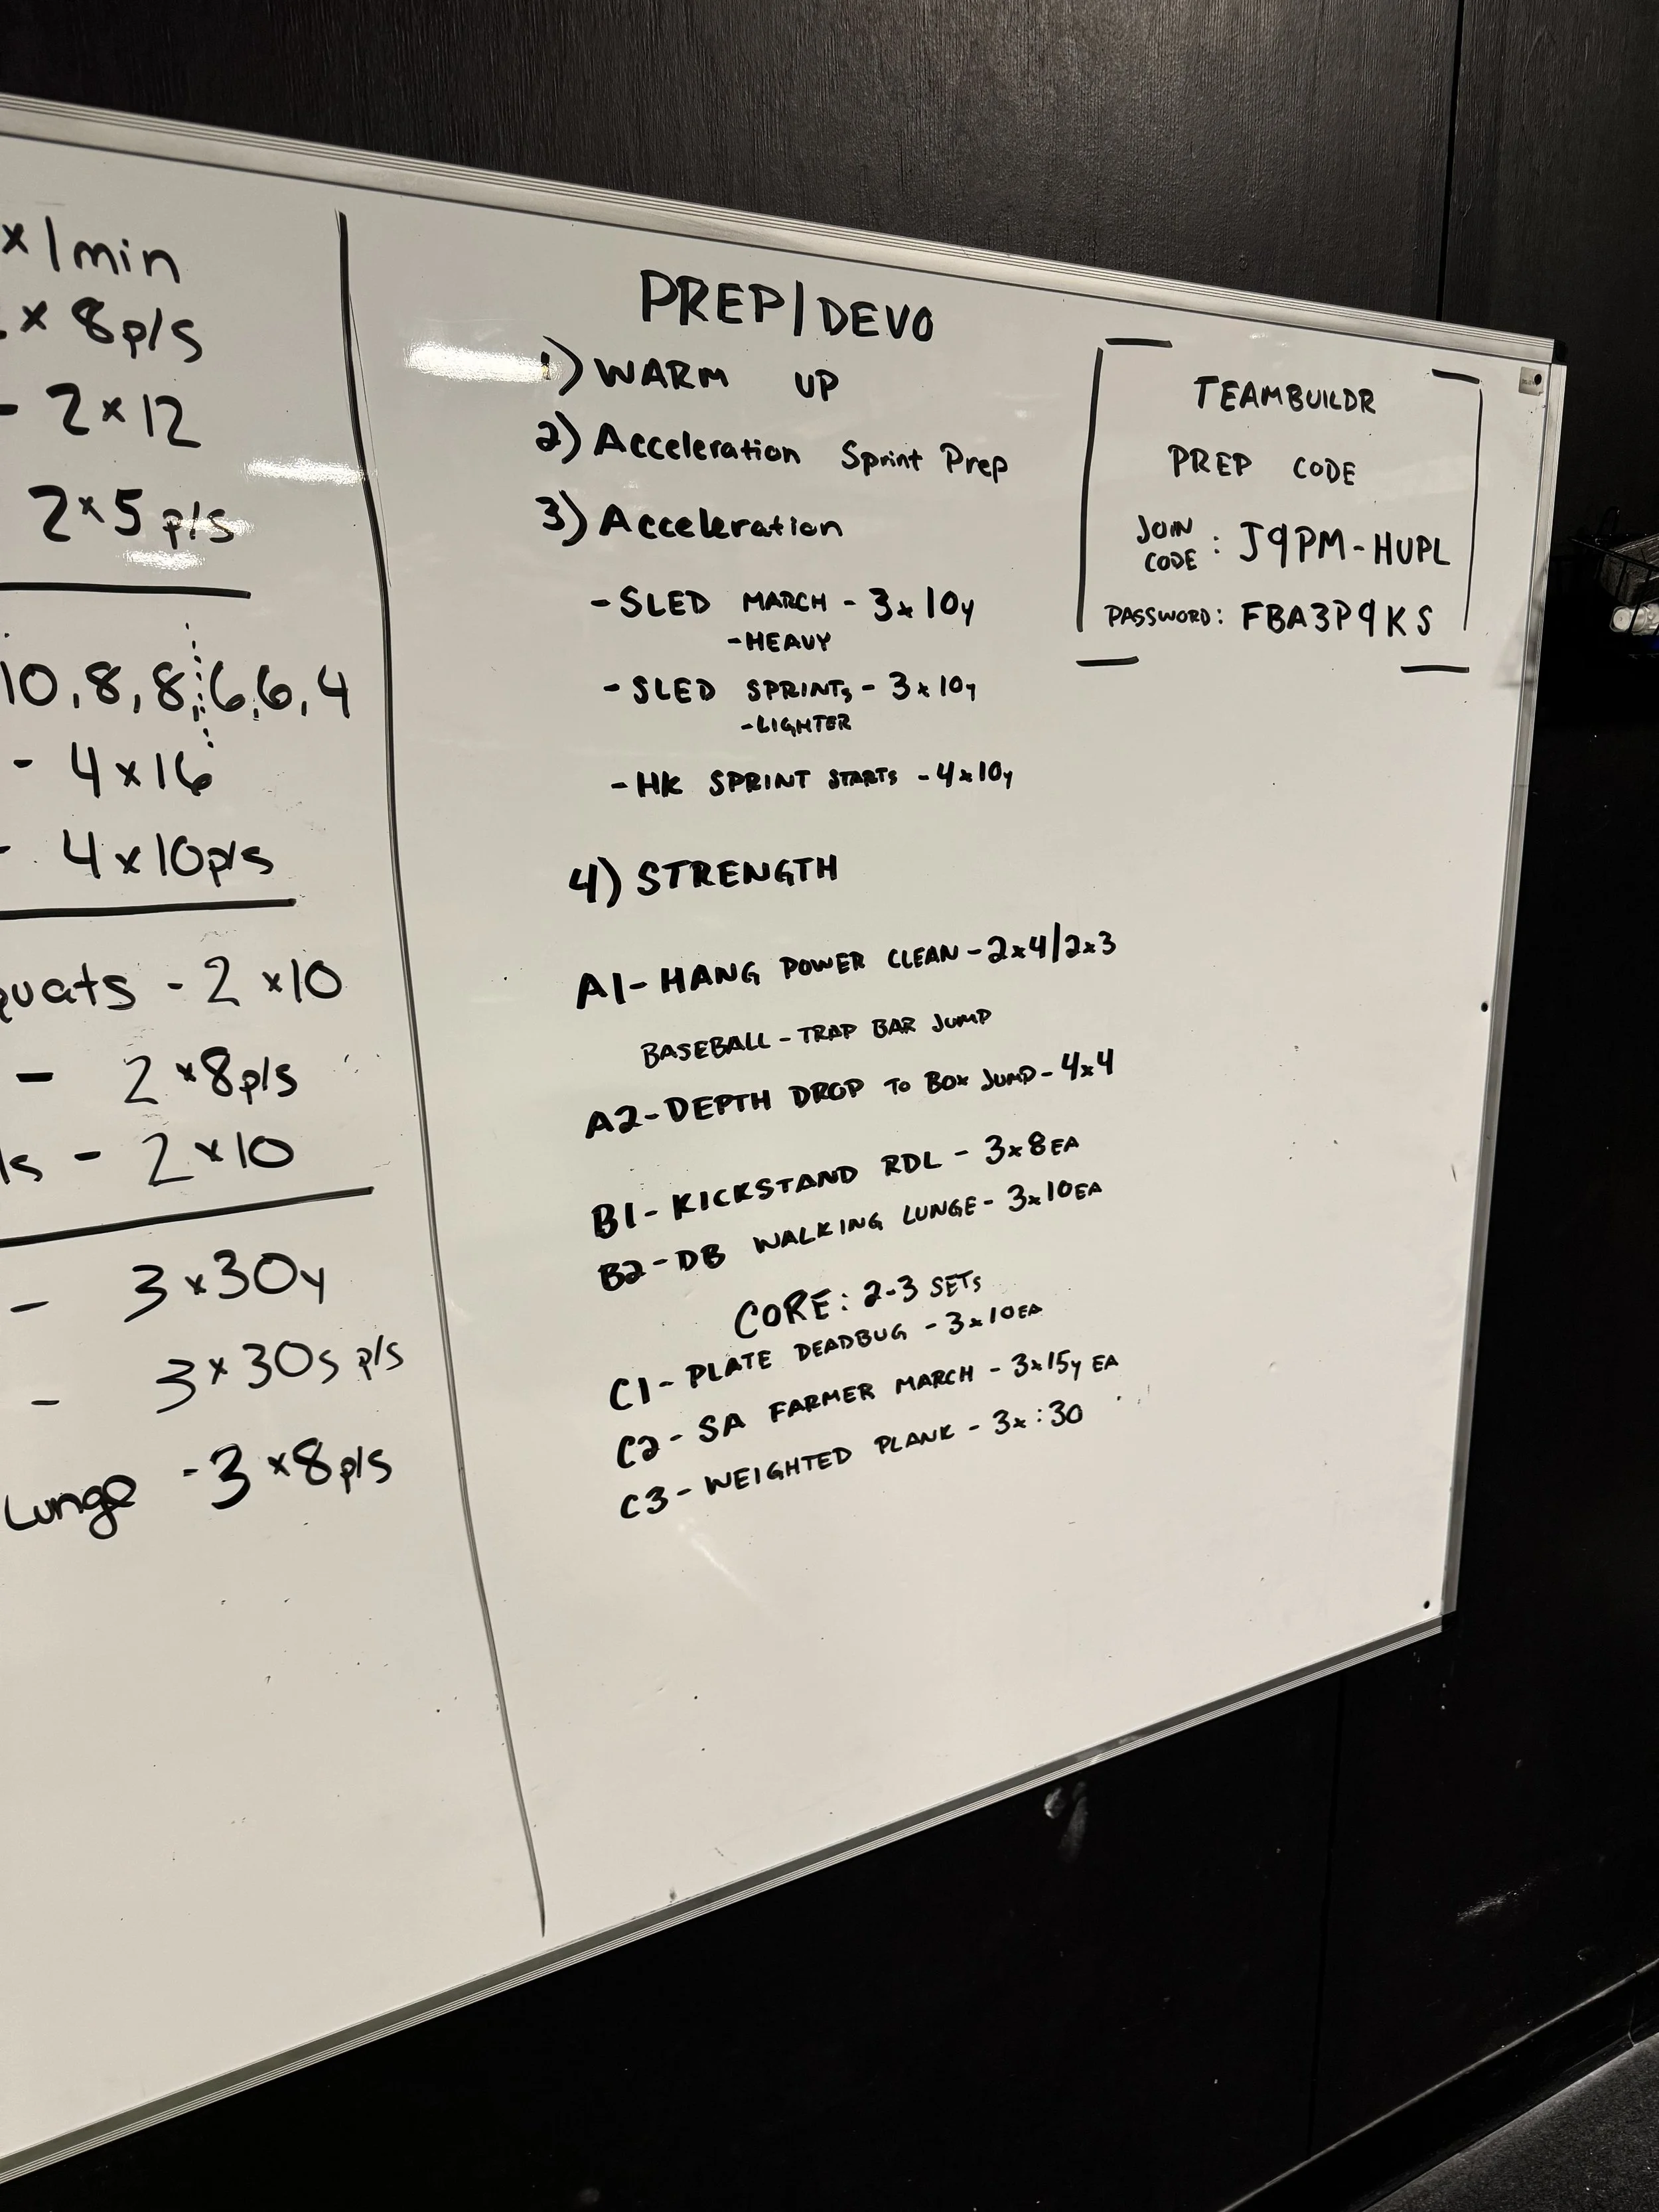 x 1min
x 8p/s
- 2x12
2x5 p/s
10, 8, 8, 6, 6, 4
- 4x16
- 4x10p/s
- 2x10
- 2x8p/s
- 2x10
- 3x30y
- 3x30s p/s
Lunge - 3x8p/s
PREP/DEVO
1) WARM UP
2) Acceleration Sprint Prep
3) Acceleration
- SLED MARCH - 3x10y
- HEAVY
- SLED SPRINTS - 3x10y
- LIGHTER
- HK SPRINT STARTS - 4x10y
4) STRENGTH
A1- HANG POWER CLEAN - 2x4/2x3
BASEBALL - TRAP BAR JUMP
A2- DEPTH DROP TO BOX JUMP - 4x4
B1- KICKSTAND RDL - 3x8EA
B2- DB WALKING LUNGE - 3x10EA
CORE: 2-3 SETS
C1- PLATE DEADBUG - 3x10EA
C2- SA FARMER MARCH - 3x15y EA
C3- WEIGHTED PLANK - 3x:30
TEAMBUILDR
PREP CODE
JOIN CODE: J9PM-HUPL
PASSWORD: FBA3P9KS